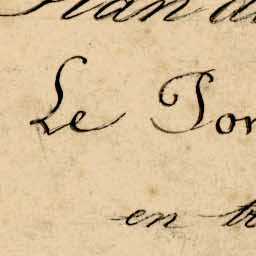 Plan d
Le Por
en tr